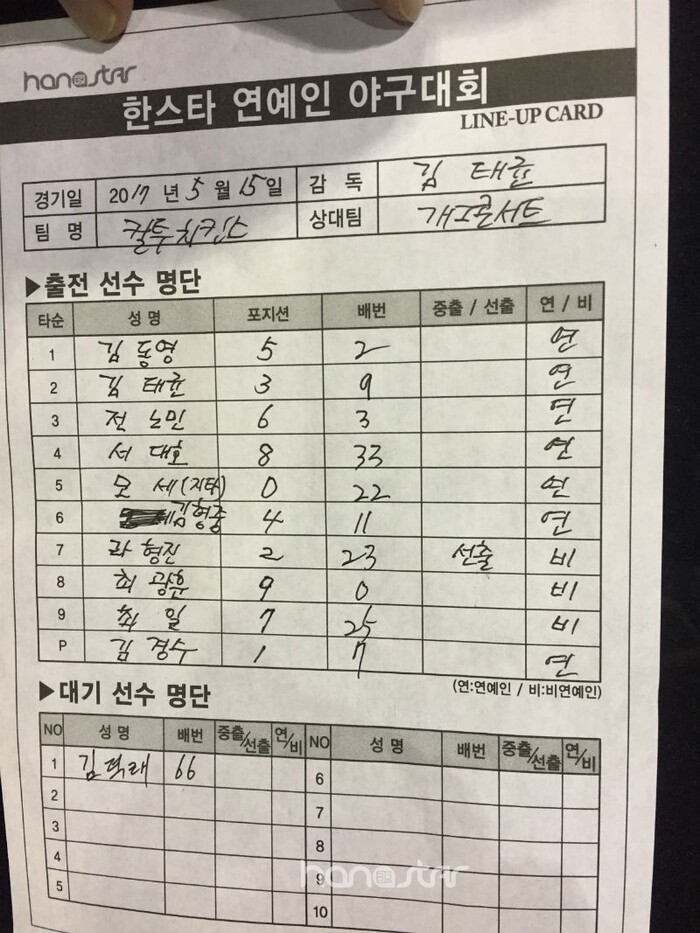 hanastar
한스타 연예인 야구대회
LINE-UP CARD
경기일 2017 년 5 월 15 일 감 독 김 태균
팀 명 컬투치킨스 상대팀 개그콘서트
▶출전 선수 명단
타순 성 명 포지션 배번 중출 / 선출 연 / 비
1 김 동영 5 2 연
2 김 태균 3 9 연
3 전 노민 6 3 연
4 서 대호 8 33 연
5 모 세 (지타) 0 22 연
6 김형중 4 11 연
7 라 형진 2 23 선출 비
8 최 광훈 9 0 비
9 최 일 7 25 비
P 김 경수 1 7 연
(연:연예인 / 비:비연예인)
▶대기 선수 명단
NO 성 명 배번 중출/선출 연/비 NO 성 명 배번 중출/선출 연/비
1 66 6
2 7
3 8
4 9
5 10
hanastar